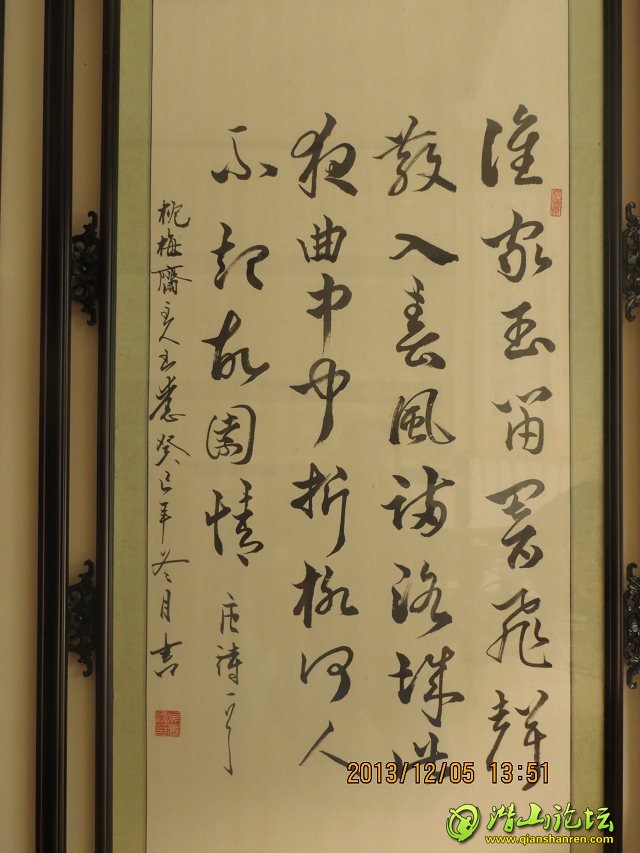 誰家玉笛暗飛聲
散入春風滿洛城此
夜曲中聞折柳何人
不起故園情 唐詩一首
梅齋主人 癸巳年冬月吉
2013/12/05 13:51
潜山论坛
www.qianshanren.com